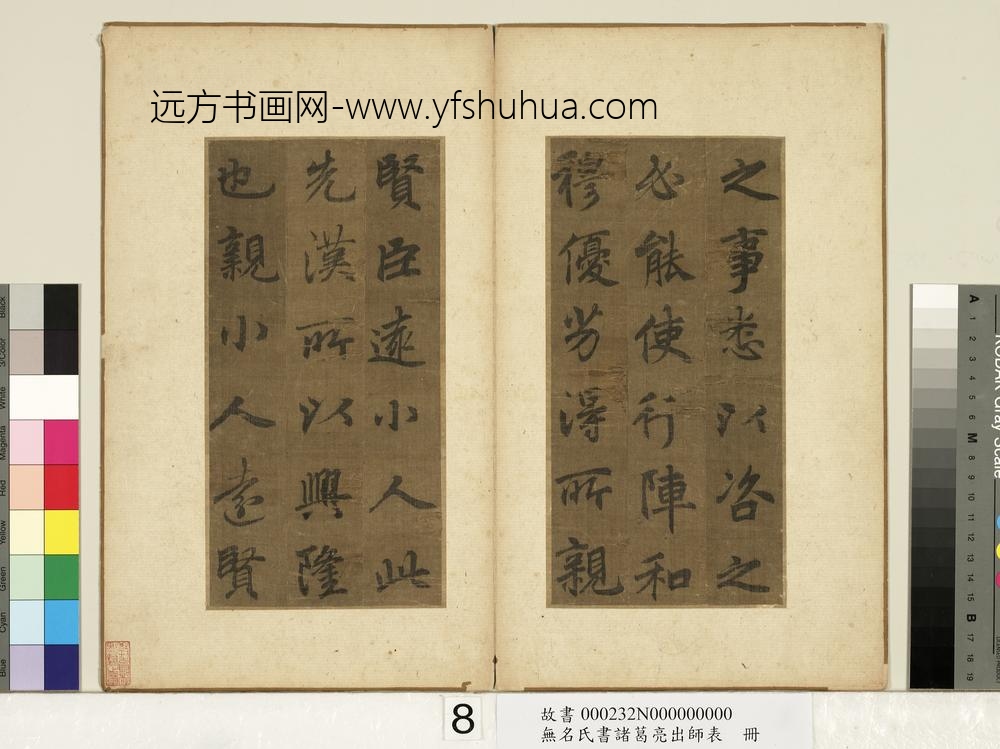 远方书画网-www.yfshuhua.com
之事悉以咨之
必能使行陣和
穆優劣得所親
賢臣遠小人此
先漢所以興隆
也親小人遠賢
8
故書 000232N000000000
無名氏書諸葛亮出師表 冊
Black
3/Color
White
Magenta
Red
Yellow
Green
Cyan
Blue
KODAK Gray Scale
A 1 2 3 4 5 6 M 8 9 10 11 12 13 14 15 B 17 18 19